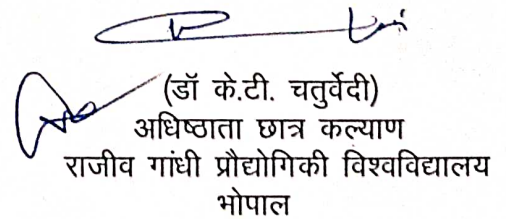 (डॉ के.टी. चतुर्वेदी)
अधिष्ठाता छात्र कल्याण
राजीव गांधी प्रौद्योगिकी विश्वविद्यालय
भोपाल